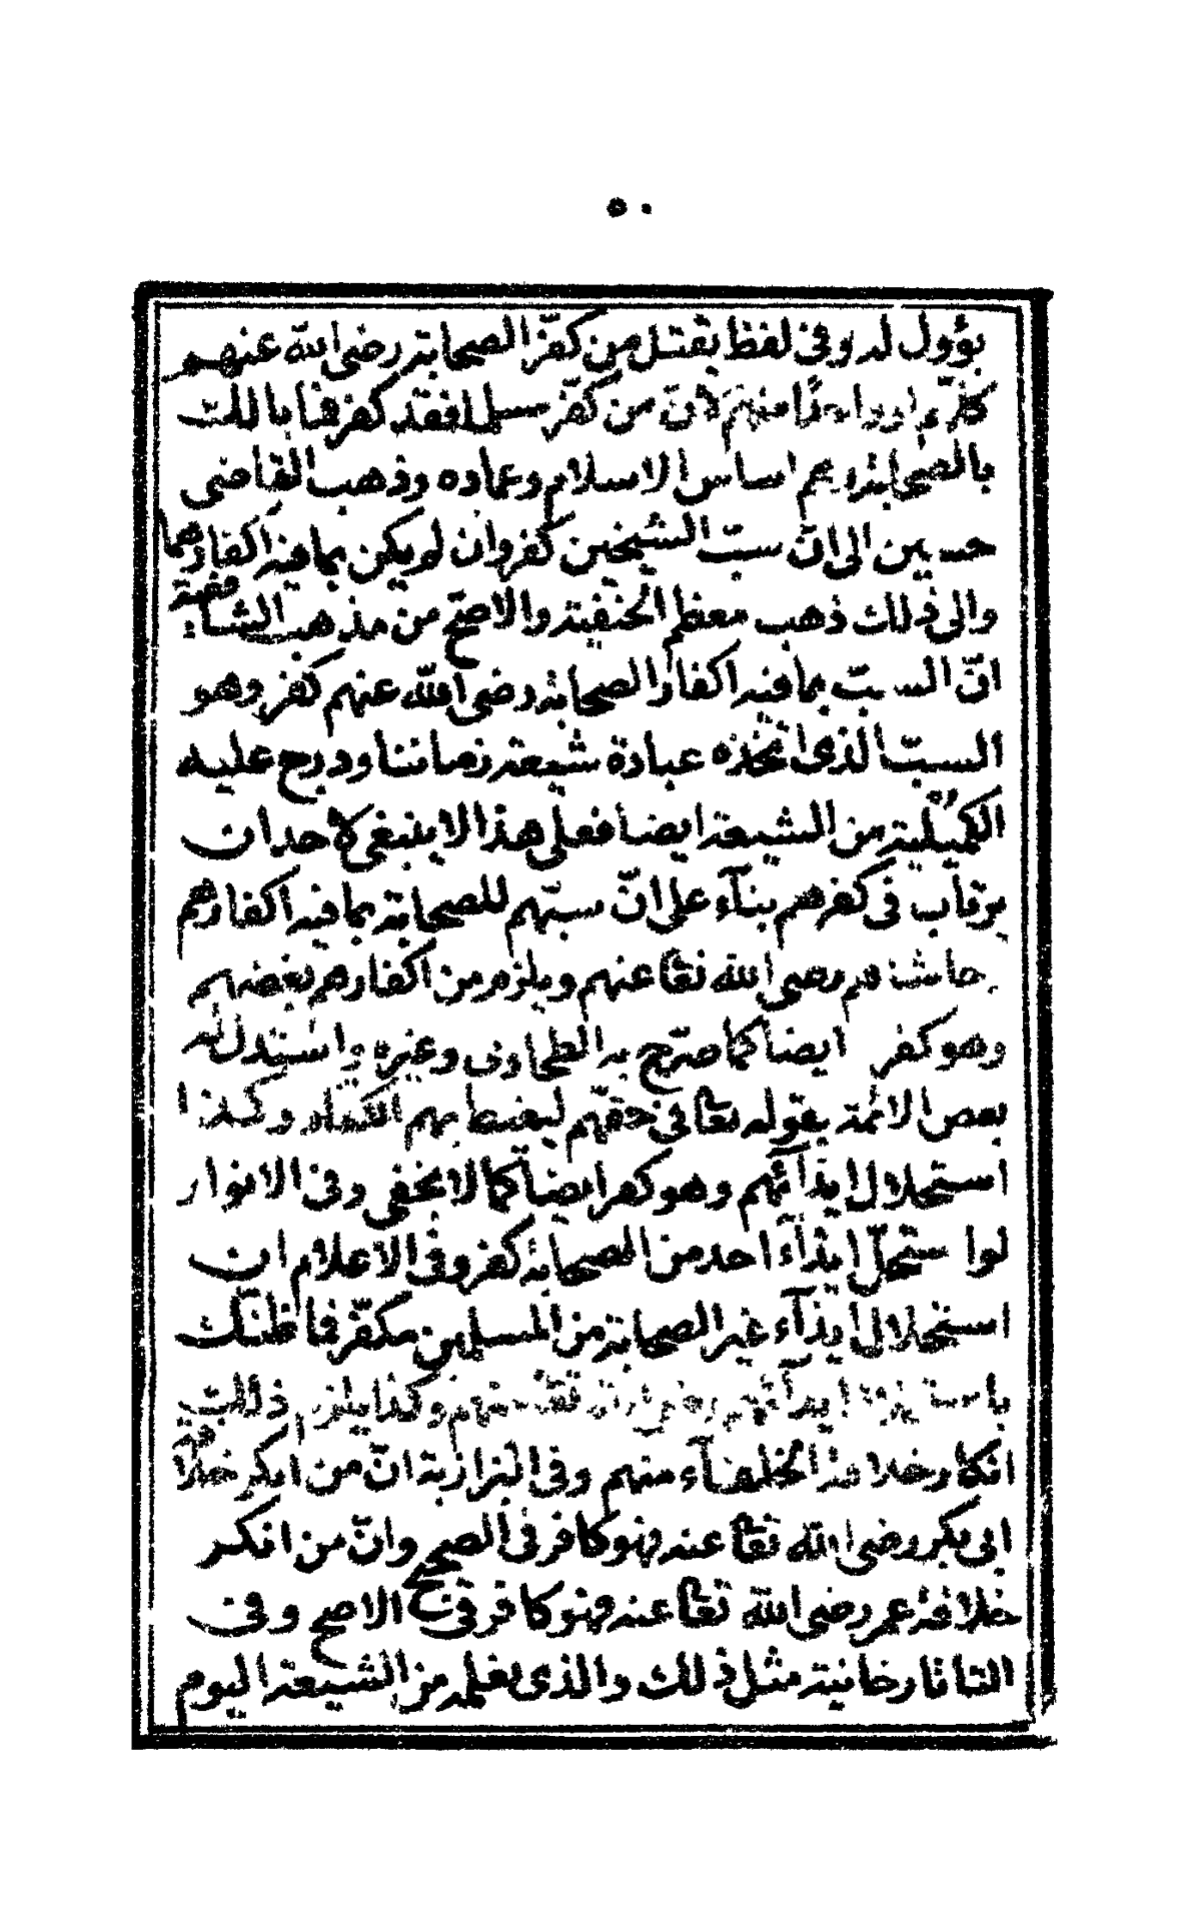 ٥٠
يؤول له وفي لفظ يقتل من كفّر الصحابة رضى الله عنهم
كفّرهم او واحدًا منهم لانّ من كفّر مسلما فقد كفر فما بالك
بالصحابة وهم اساس الاسلام وعماده وذهب القاضى
حسين الى انّ سبّ الشيخين كفر وان لم يكن بما فيه اكفارهما
والى ذلك ذهب معظم الحنفية والاصحّ من مذهب الشافعية
انّ السبّ بما فيه اكفار الصحابة رضى الله عنهم كفر وهو
السبّ الذى اتخذه عبادة شيعة زماننا ودرج عليه
الكميلية من الشيعة ايضا فعلى هذا لا ينبغى لاحد ان
يرتاب فى كفرهم بنآء على انّ سبّهم للصحابة بما فيه اكفارهم
حاشاهم رضى الله تعا عنهم ويلزم من اكفارهم بغضهم
وهو كفر ايضا كما صرّح به الطحاوى وغيره واستدل له
بعض الائمة بقوله تعا فى حقهم ليغيظ بهم الكفار وكذا
استحلال ايذآئهم وهو كفر ايضا كما لا يخفى وفى الانوار
لو استحلّ ايذآء احد من الصحابة كفر وفى الاعلام ان
استحلال ايذآء غير الصحابة من المسلمين مكفّر فما ظنّك
ايذآئهم رضى منهم وكذا يلزم ذلك
انكار خلافة الخلفآء منهم وفى البزازية انّ من انكر خلافة
ابى بكر رضى الله تعا عنه فهو كافر فى الصحيح وانّ من انكر
خلافة عمر رضى الله تعا عنه فهو كافر فى الاصح وفى
التاتارخانية مثل ذلك والذى نعلمه من الشيعة اليوم